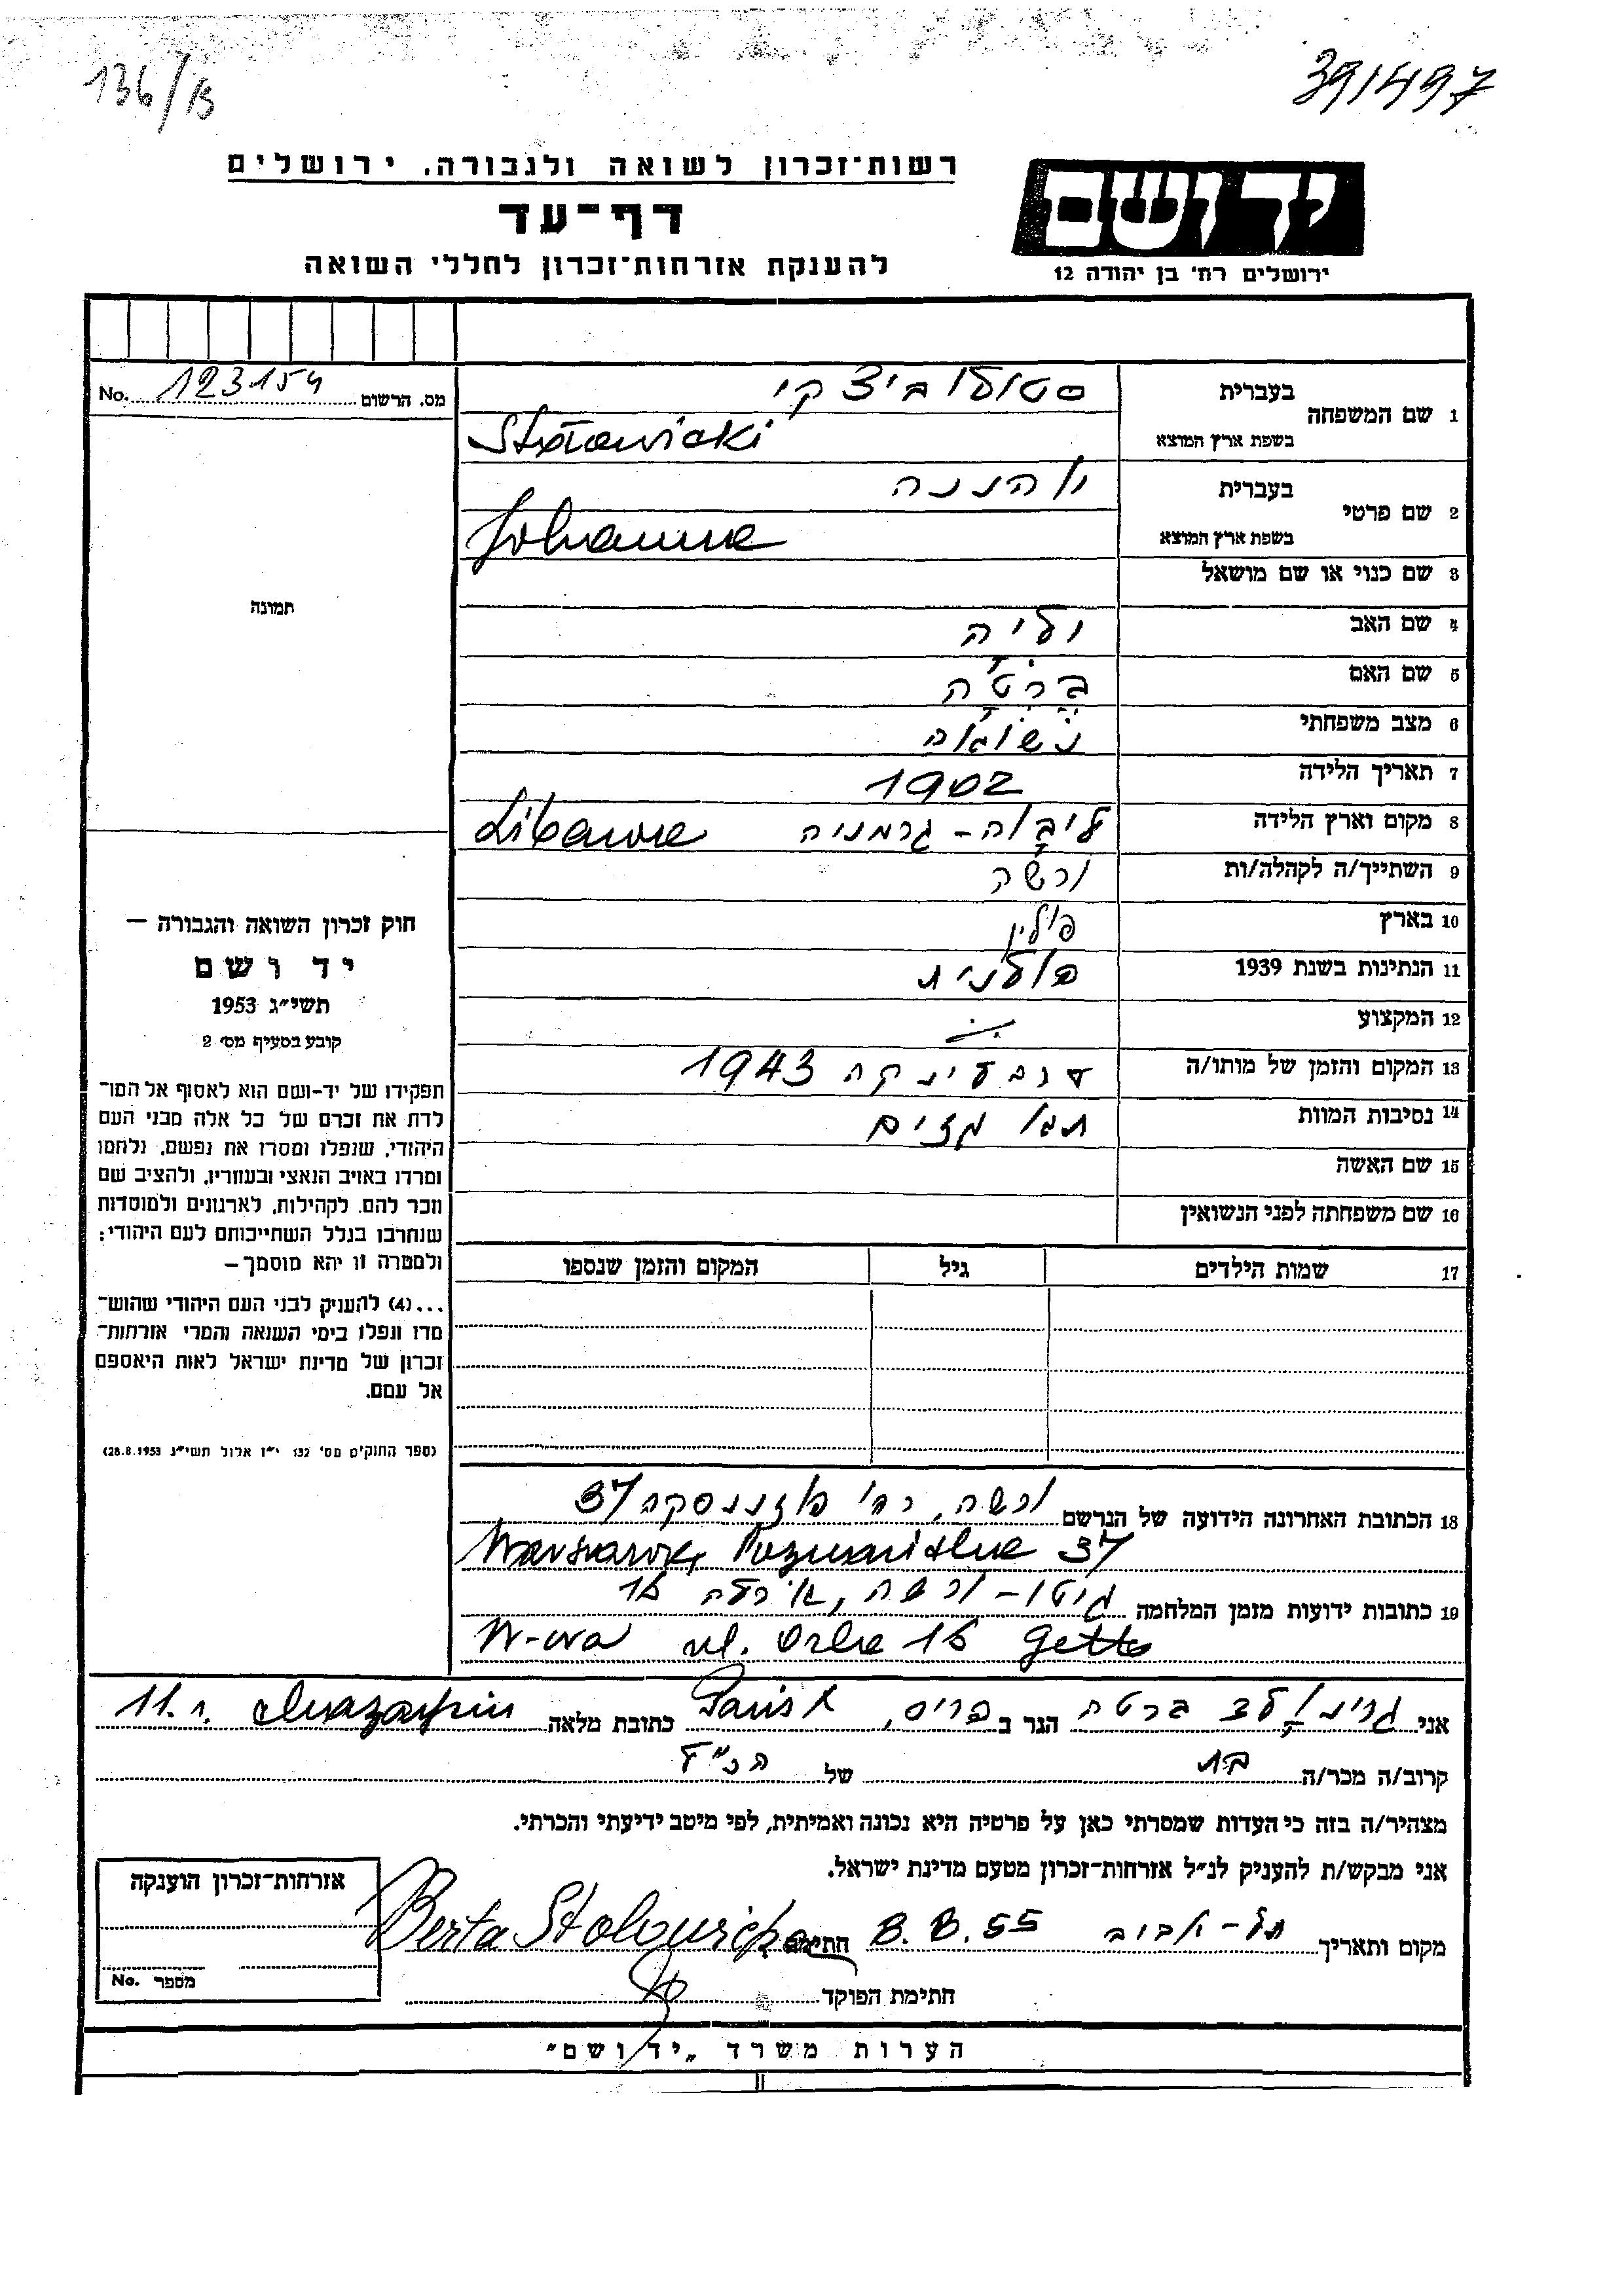 136/B
391497
רשות־זכרון לשואה ולגבורה, ירושלים
דף־עד
להענקת אזרחות־זכרון לחללי השואה
יד ושם
ירושלים רח' בן יהודה 12
מס. הרשום 123154 No.
תמונה
חוק זכרון השואה והגבורה —
יד ושם
תשי״ג 1953
קובע בסעיף מס׳ 2
תפקידו של יד-ושם הוא לאסוף אל המו־
לדת את זכרם של כל אלה מבני העם
היהודי, שנפלו ומסרו את נפשם, נלחמו
ומרדו באויב הנאצי ובעוזריו, ולהציב שם
וזכר להם, לקהילות, לארגונים ולמוסדות
שנחרבו בגלל השתייכותם לעם היהודי;
ולמטרה זו יהא מוסמך—
...(4) להעניק לבני העם היהודי שהוש־
מדו ונפלו בימי השואה והמרי אזרחות־
זכרון של מדינת ישראל לאות היאספם
אל עמם.
(ספר החוקים מס׳ 132 י״ז אלול תשי״ג 28.8.1953)
1 שם המשפחה
בעברית סטולוביצקי
בשפת ארץ המוצא Stołowicki
2 שם פרטי
בעברית יוהננה
בשפת ארץ המוצא Johanna
3 שם כנוי או שם מושאל
4 שם האב
5 שם האם ברטה
6 מצב משפחתי נשואה
7 תאריך הלידה 1902
8 מקום וארץ הלידה ליבוה - גרמניה Libawa
9 השתייך/ה לקהלה/ות ורשה
10 בארץ פולין
11 הנתינות בשנת 1939 פולנית
12 המקצוע
13 המקום והזמן של מותו/ה טרבלינקה 1943
14 נסיבות המוות תאי גזים
15 שם האשה
16 שם משפחתה לפני הנשואין
17 שמות הילדים גיל המקום והזמן שנספו
18 הכתובת האחרונה הידועה של הנרשם ורשה, רח' פוזננסקה 37
Warszawa, Poznańska 37
19 כתובות ידועות מזמן המלחמה גיטו - ורשה, אורלה 16
W-wa ul. Orla 16 Getto
אני ברטה הגר ב פריס, Paris כתובת מלאה 11. r.
קרוב/ה מכר/ה בת של הנ״ל
מצהיר/ה בזה כי העדות שמסרתי כאן על פרטיה היא נכונה ואמיתית, לפי מיטב ידיעתי והכרתי.
אני מבקש/ת להעניק לנ״ל אזרחות־זכרון מטעם מדינת ישראל.
מקום ותאריך תל-אביב 8.8.55 חתימה Berta Stolowicka
חתימת הפוקד
אזרחות־זכרון הוענקה
מספר No.
הערות משרד „יד ושם״